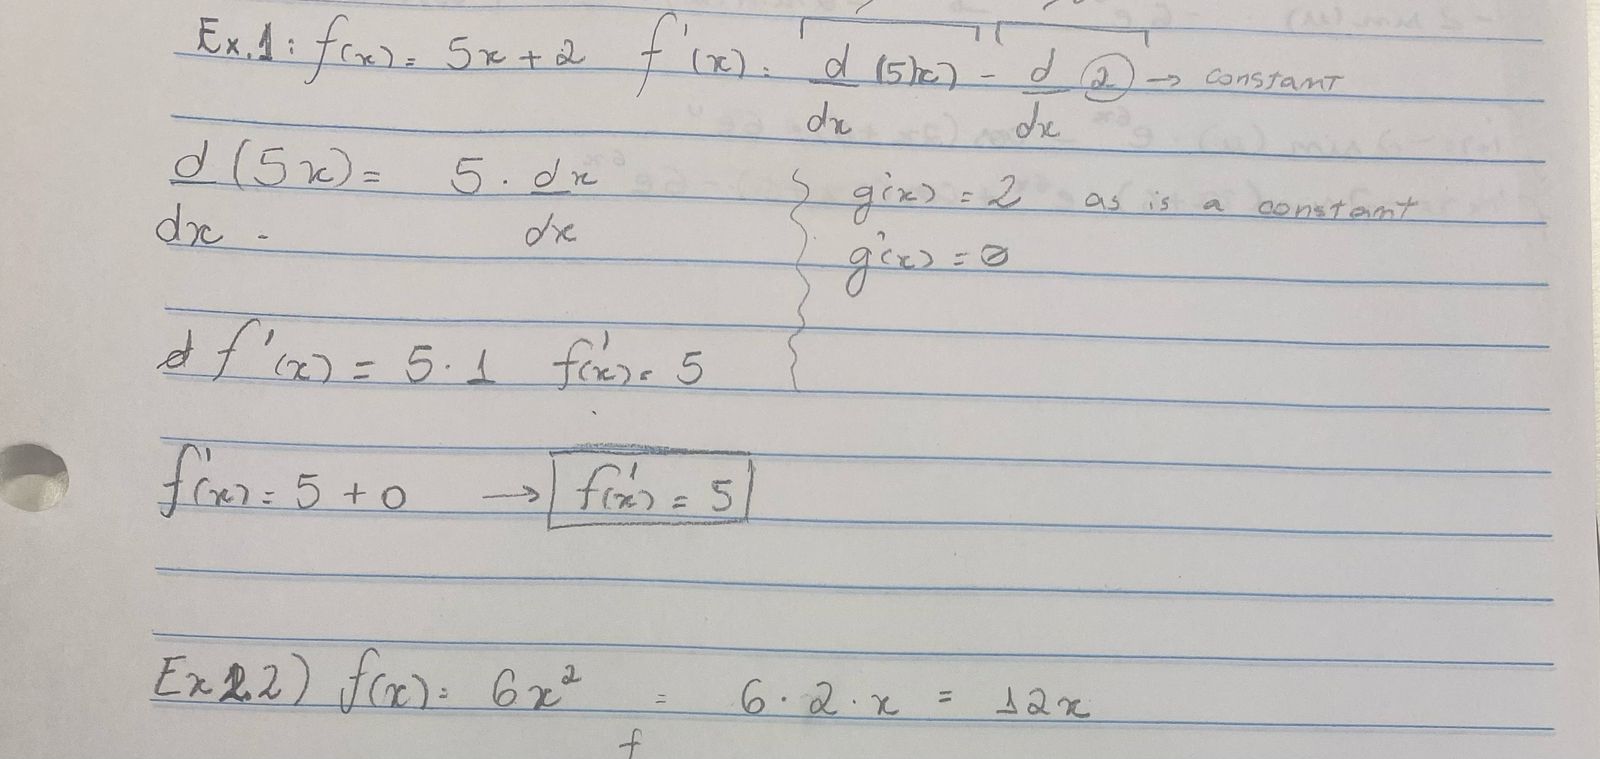 Ex.1: f(x) = 5x + 2 f'(x) = d/dx (5x) - d/dx (2) → constant
d/dx (5x) = 5 · dx/dx
g(x) = 2 as is a constant
g'(x) = 0
f'(x) = 5 · 1 f'(x) = 5
f'(x) = 5 + 0 → f'(x) = 5
Ex 2.2) f(x) = 6x² = 6 · 2 · x = 12x
f